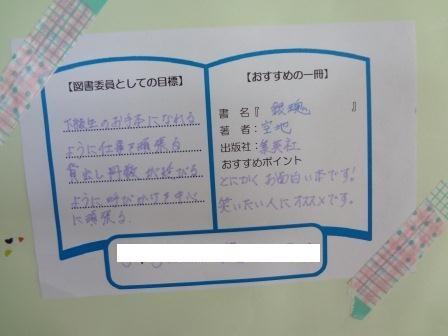 【図書委員としての目標】
下級生のお手本になれる
ように仕事を頑張る
貸出し冊数が延びる
ように呼びかけを中心
に頑張る。
【おすすめの一冊】
書 名『 銀魂 』
著 者：空地
出版社：集英社
おすすめポイント
とにかくお面白い本です！
笑いたい人にオススメです。